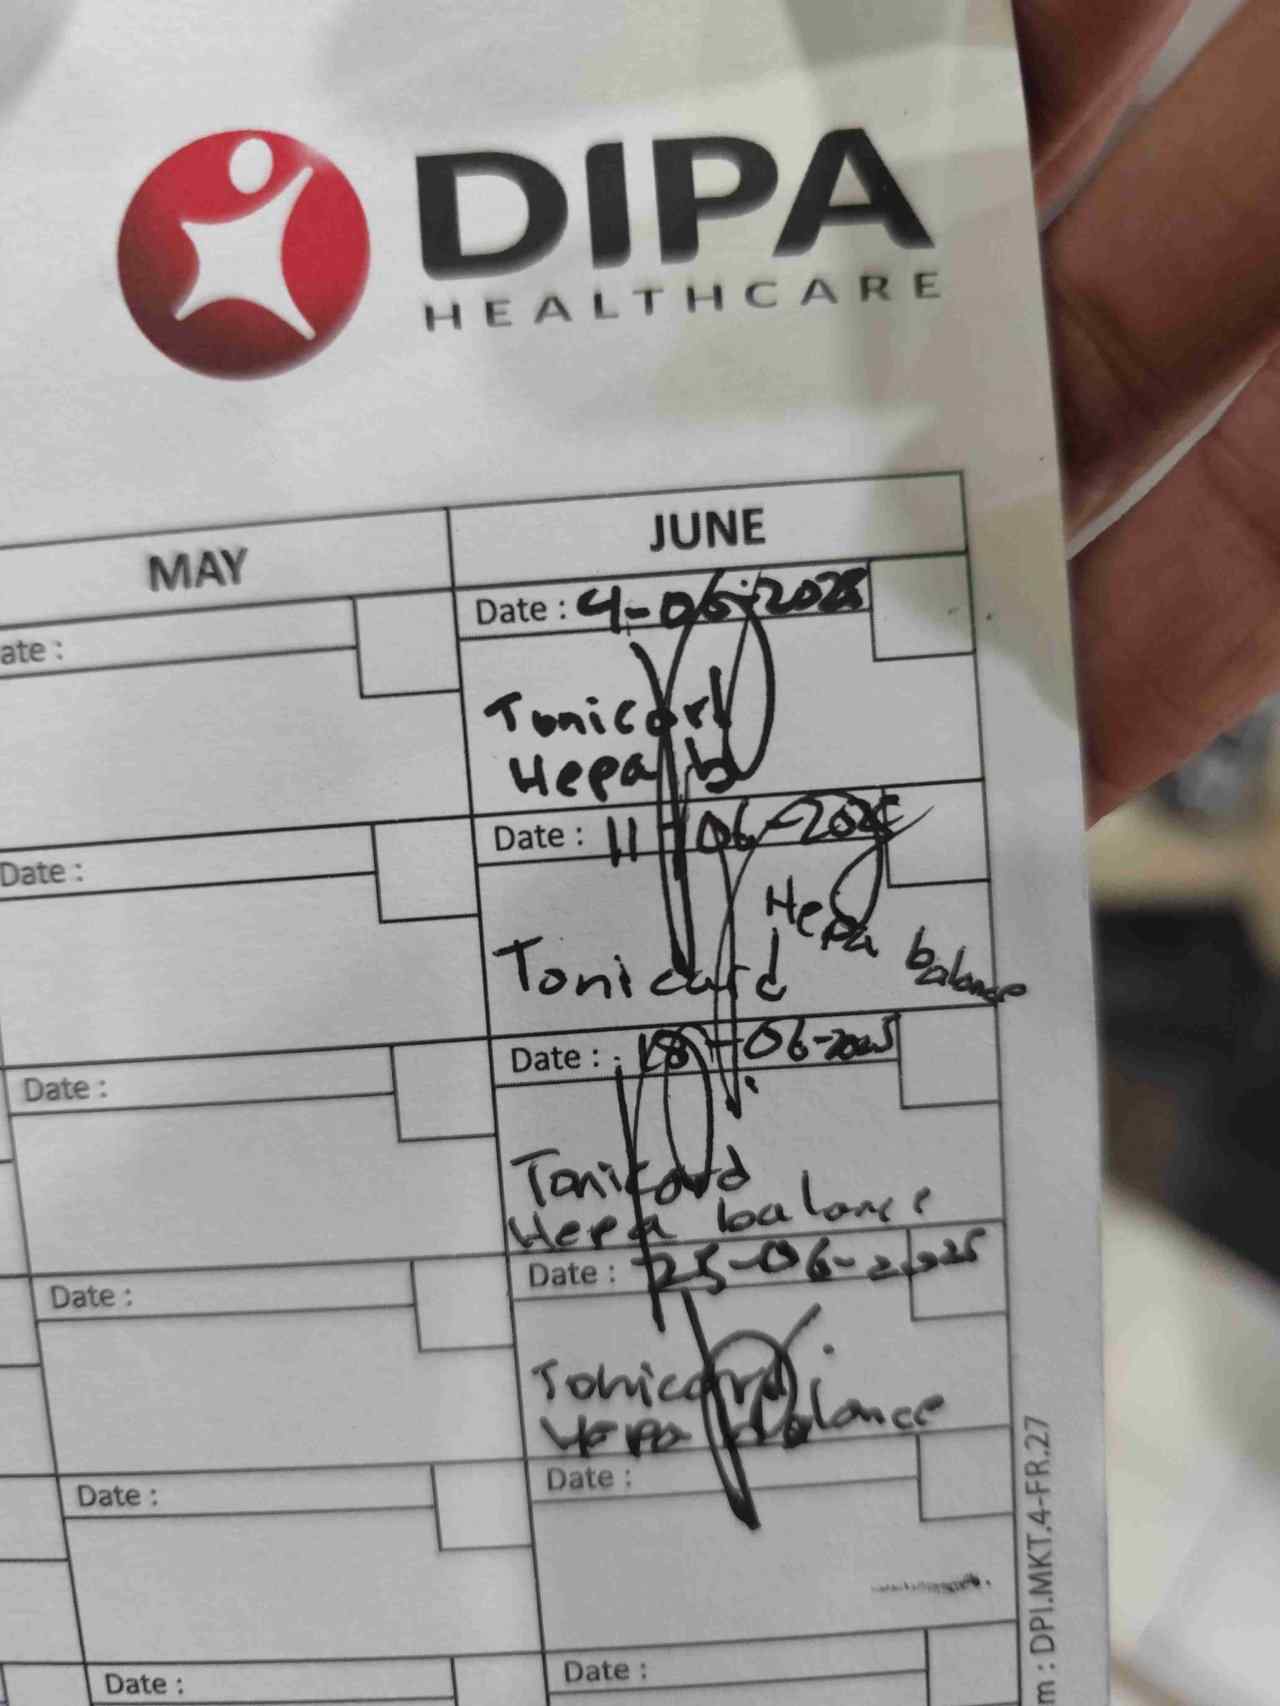 DIPA
HEALTHCARE
MAY
JUNE
ate :
Date : 4-06-2025
Tonicard
Hepa b
Date :
Date : 11-06-2025
Hepa balance
Tonicard
Date :
Date : 18-06-2025
Tonicard
Hepa balance
Date :
Date : 25-06-2025
Tonicard
Hepa balance
Date :
Date :
Date :
Date :
m : DPI.MKT.4-FR.27